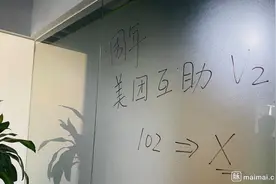 周年
美团互助 V2
102 ⇒ X
脉 maimai.c